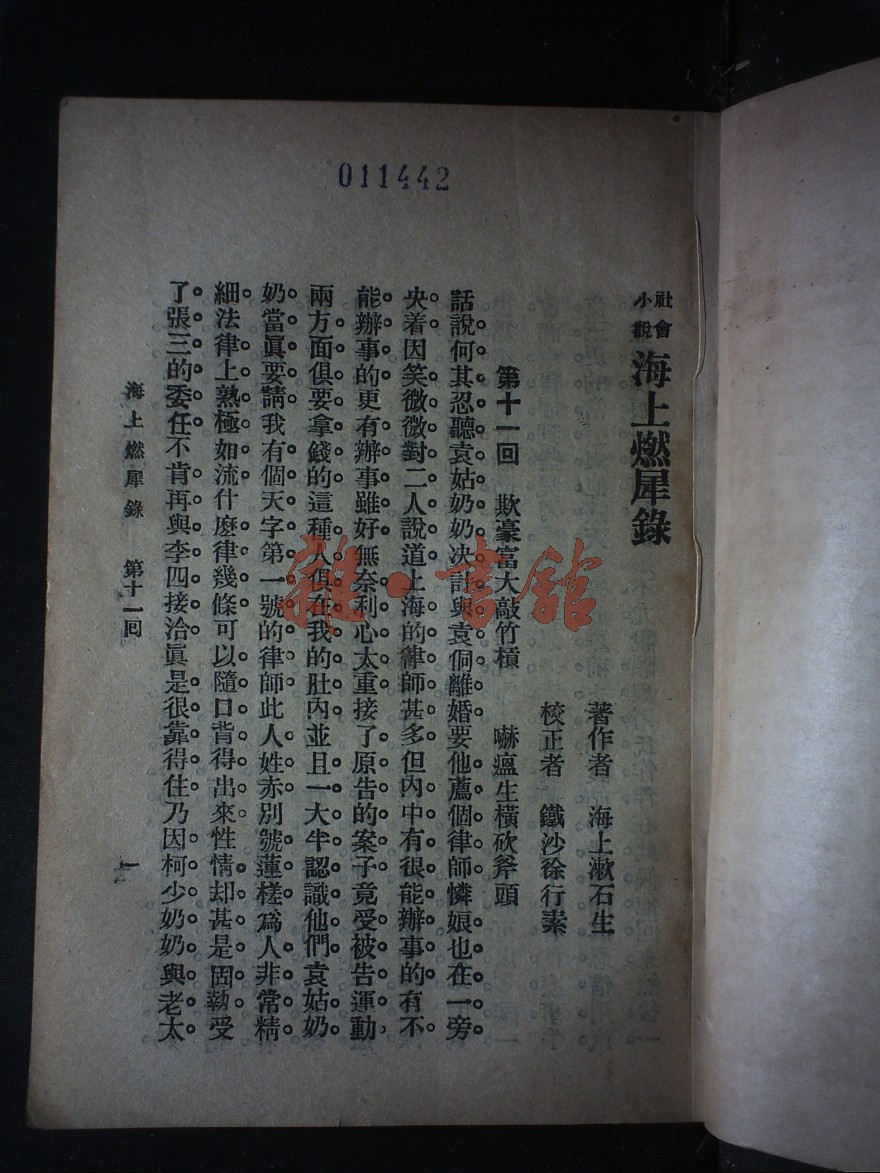 011442
社會小說 海上燃犀錄
著作者 海上漱石生
校正者 鐵沙徐行素
第十一回 欺豪富大敲竹槓 嚇瘟生橫砍斧頭
話說何其忍聽袁姑奶奶決計與袁侗離婚要他薦個律師憐娘也在一旁
央着因笑微微對二人說道上海的律師甚多但內中有很能辦事的有不
能辦事的更有辦事雖好無奈利心太重接了原告的案子竟受被告運動
兩方面俱要拿錢的這種人俱在我的肚內並且一大半認識他們袁姑奶
奶當眞要請我有個天字第一號的律師此人姓赤別號蓮槎爲人非常精
細法律上熟極如流什麼律幾條可以隨口背得出來性情却甚是固執受
了張三的委任不肯再與李四接洽眞是很靠得住乃因柯少奶奶與老太
海上燃犀錄 第十一回 一
雜·書館